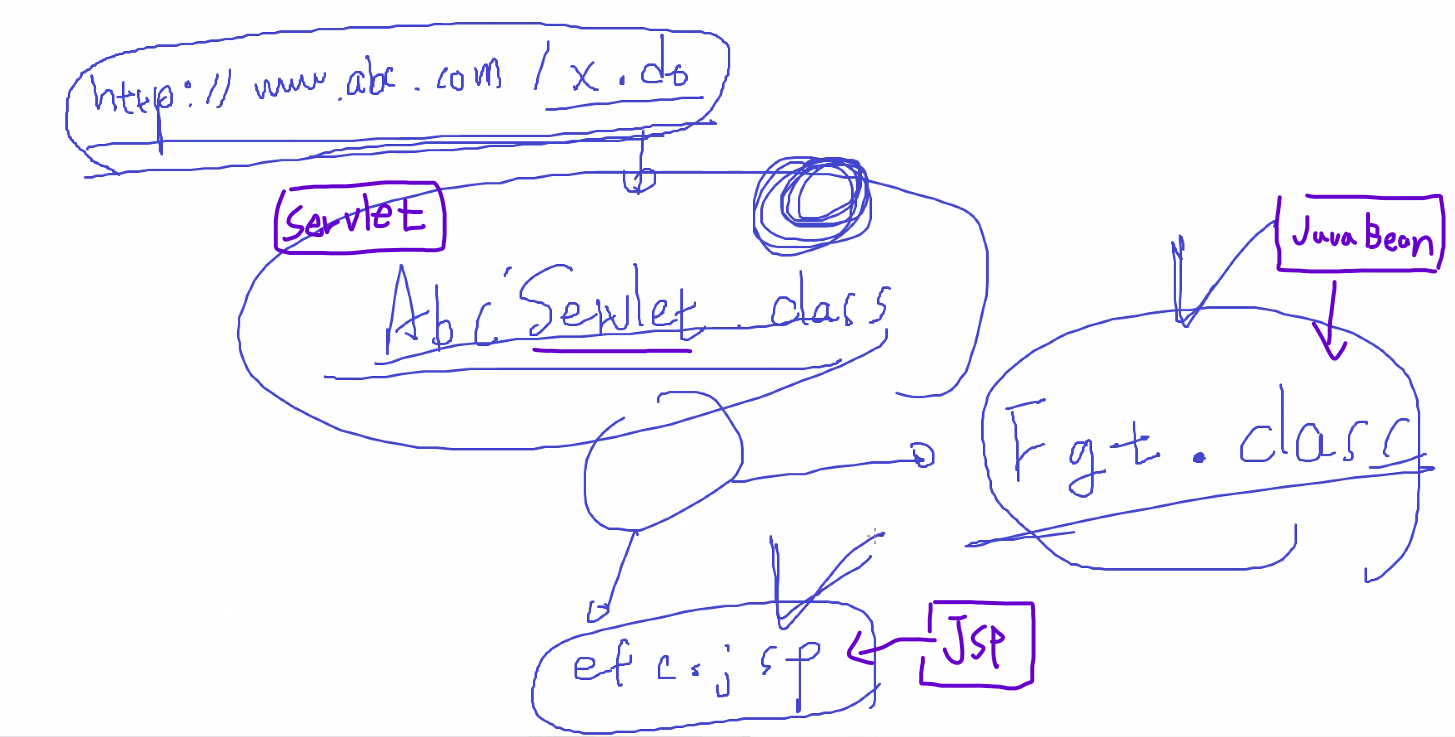 http://www.abc.com/x.do
Servlet
AbcServlet.class
JavaBean
Fgt.class
efc.jsp
JSP